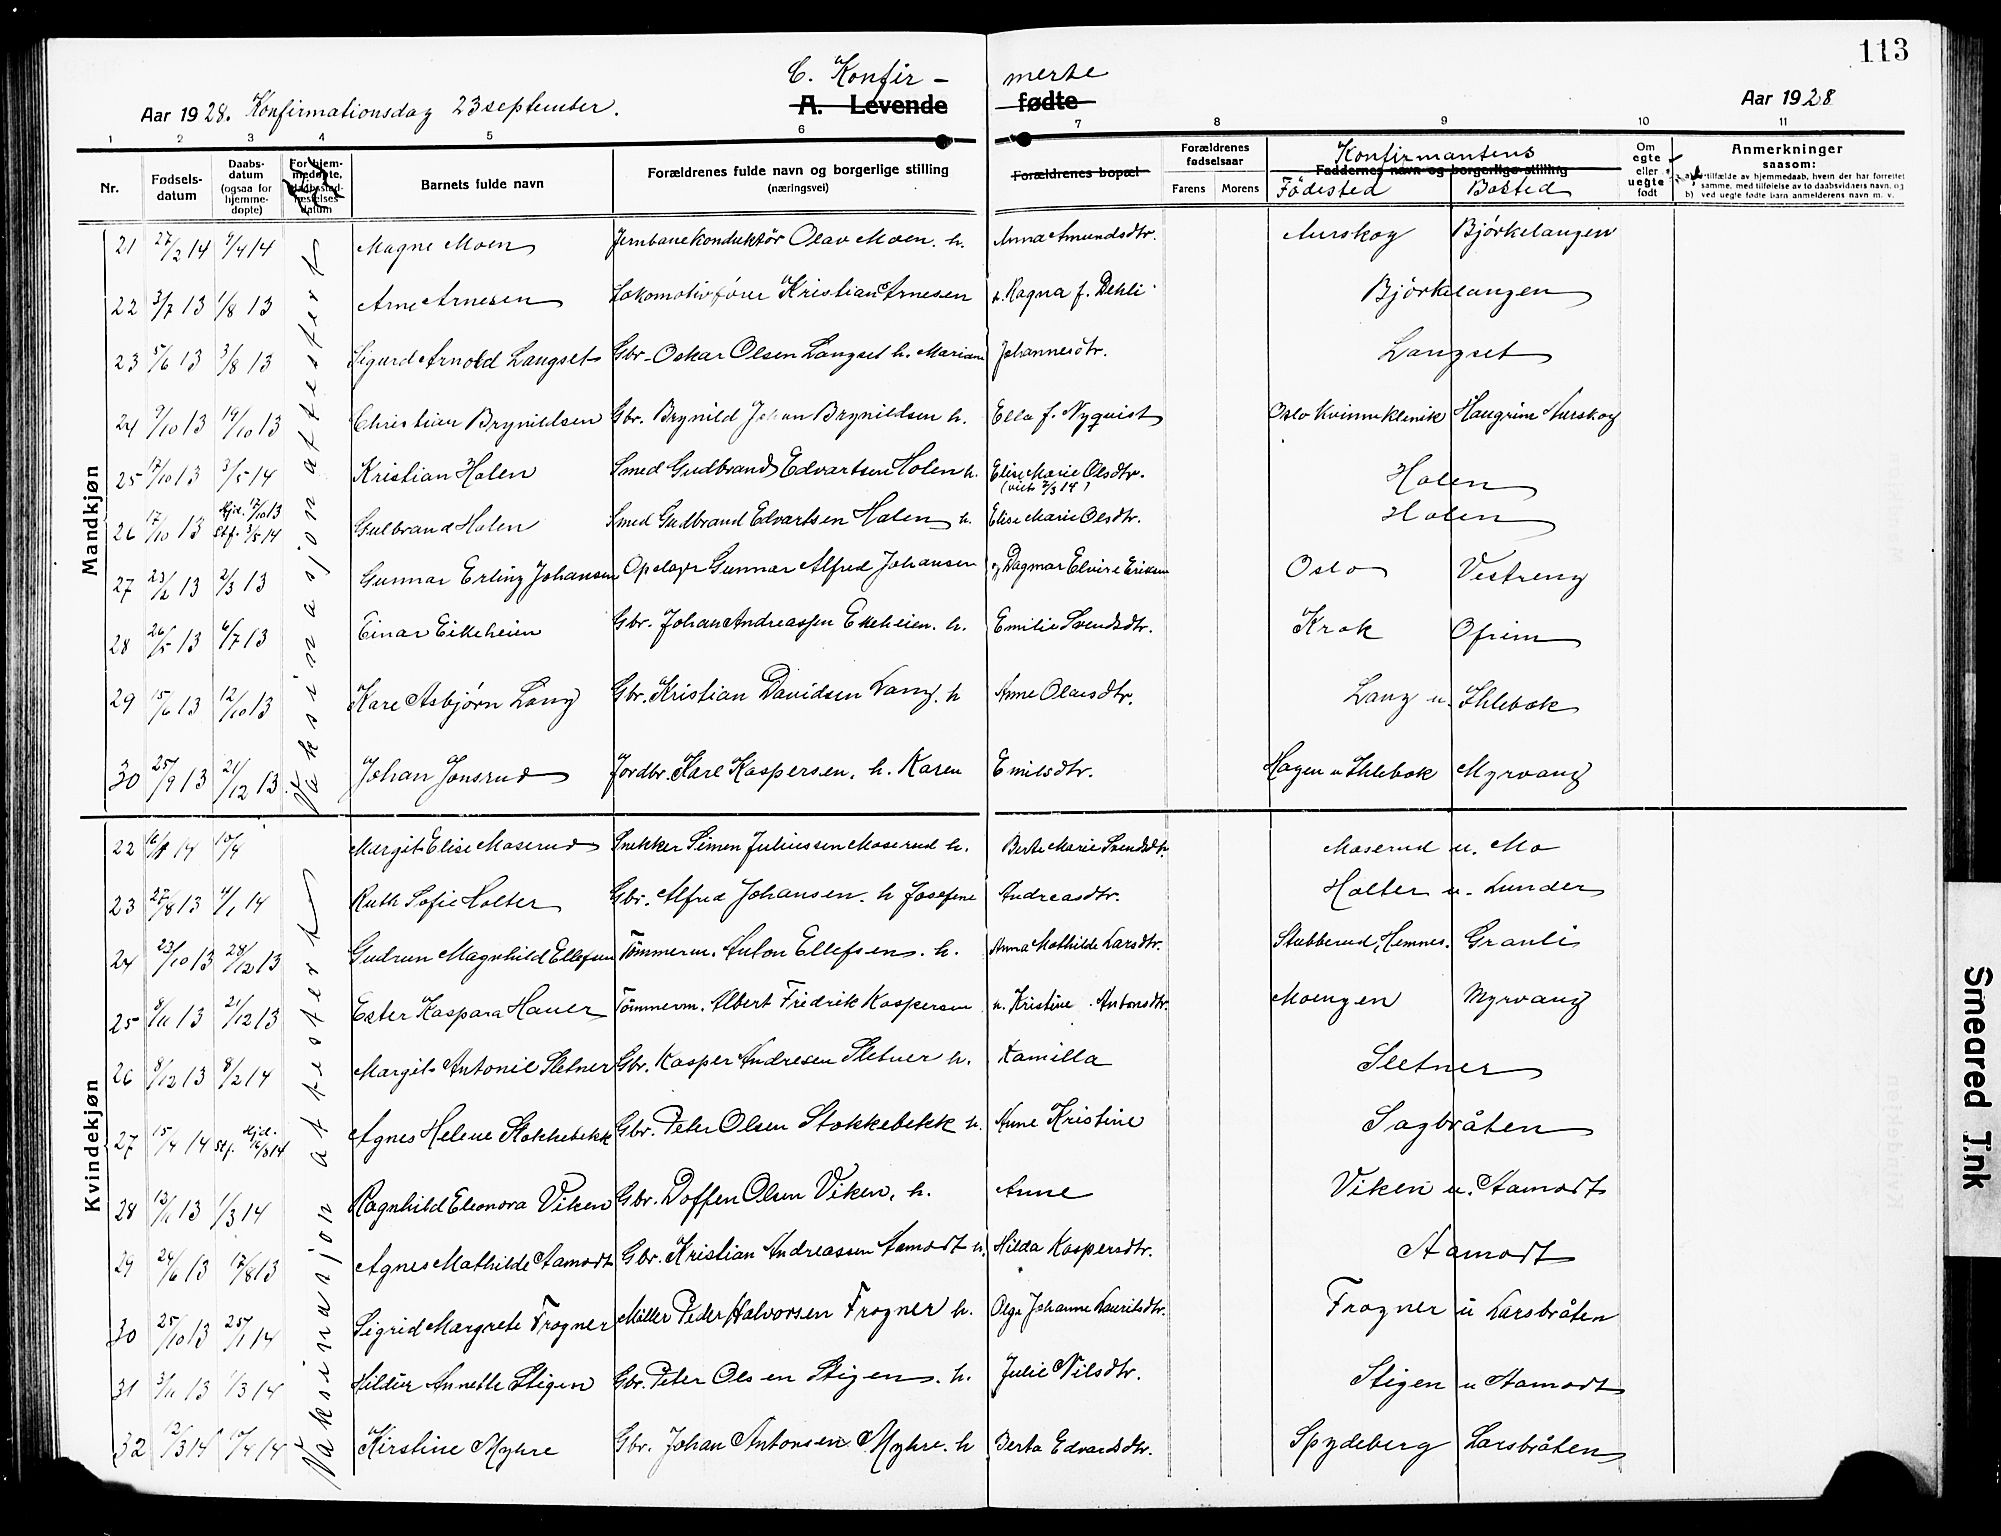 113
C. Konfir- merte
Aar 1928. Konfirmationsdag 23 september. A. Levende fødte Aar 1928
1 2 3 4 5 6 7 8 9 10 11
Nr. Fødselsdatum Daabsdatum (ogsaa for hjemmedøpte) Barnets fulde navn Forældrenes fulde navn og borgerlige stilling (næringsvei) Forældrenes bopæl Forældrenes fødselsaar Farens Morens Faddernes navn og borgerlige stilling Konfirmantens Födested Bosted Om egte eller uegte født Anmerkninger saasom: a) tilfælde av hjemmedaab, hvem der har forrettet samme, med tilføielse av to daabsvidners navn, og b) ved uegte fødte barn anmelderens navn m. v.
Mandkjøn
Vaksinasjon attestert
21 27/2 14 9/4 14 Magne Moen Jernbanekonduktör Olav Moen. h. Anna Amundsdtr. Aurskog Bjórkelangen
22 3/7 13 1/8 13 Arne Arnesen Lokomotivförer Kristian Arnesen h. Ragna f. Dehli Björkelangen
23 5/6 13 3/8 13 Sigurd Arnold Langset Gbr. Oskar Olsen Langset h. Mariane Johannesdtr. Langset
24 9/10 13 19/10 13 Christian Brynildsen Gbr. Brynild Johan Brynildsen h. Ella f. Nyquist Oslo Kvinneklinik Haugrim Aurskog
25 17/10 13 3/5 14 Kristian Holen Smed Gudbrand Edvartsen Holen h. Elise Marie Olsdtr. (viet 7/3 14) Holen
26 17/10 13 Hjd. 17/10 13 Stf. 3/5 14 Gulbrand Holen Smed Gudbrand Edvartsen Holen h. Elise Marie Olsdtr. Holen
27 23/2 13 2/3 13 Gunnar Erling Johansen Opslager Gunnar Alfred Johansen og Dagmar Elvire Eriksen Oslo Vestreng
28 26/5 13 6/7 13 Einar Eikeheien Gbr. Johan Andreassen Ekeheien. h. Emilie Svendsdtr. Krok Ofrim
29 15/6 13 12/10 13 Kare Asbjørn Lang Gbr. Kristian Davidsen Lang. h Anne Olausdtr. Lang u. Ihlebæk
30 25/9 13 21/12 13 Johan Jonsrud Jordbr. Karl Kaspersen. h. Karen Emilsdtr. Hagen u Ihlebæk Myrvang
Kvindekjøn
Vaksinasjon attestert
22 14 10/4 Margit Elise Moserud Snekker Simen Juliussen Moserud h. Berte Marie Svendsdtr. Moserud u. Mo
23 27/8 13 4/1 14 Ruth Sofie Holter Gbr. Alfred Johansen. h Josefine Andreasdtr. Holter u. Lunder
24 23/10 13 28/12 13 Gudrun Magnhild Ellefsen Tömmerm. Anton Ellefsen. h. Anna Mathilde Larsdtr. Stubberud, Hemnes. Granli
25 8/11 13 21/12 13 Ester Kaspara Hauer Tömmerm. Albert Fredrik Kaspersen h. Kristine Antonsdtr. Moengen Myrvang
26 8/12 13 8/2 14 Margit Antonie Sletner Gbr. Kasper Andresen Sletner h. Kamilla Sletner
27 15/4 14 Hjd. Stf. 16/8 14 Agnes Helene Stokkebekk Gbr. Peter Olsen Stokkebekk h. Anne Kristine Sagbråten
28 13/11 13 1/3 14 Ragnhild Eleonora Viken Gbr. Doffen Olsen Viken, h. Anne Viken u. Aamodt
29 24/6 13 17/8 13 Agnes Mathilde Aamodt Gbr. Kristian Andreassen Aamodt h. Hilda Kaspersdtr. Aamodt
30 25/10 13 25/1 14 Sigrid Margrete Frogner Möller Peder Halvorsen Frogner h. Olga Johanne Lauritsdtr. Frogner u Larsbråten
31 3/11 13 1/3 14 Hildur Annette Stigen Gbr. Peter Olsen Stigen. h. Julie Nilsdtr. Stigen u Aamodt
32 12/3 14 14 Kirstine Myhre Gbr. Johan Antonsen Myhre. h Berta Edvardsdtr. Spydeberg Larsbråten
Smeared Ink